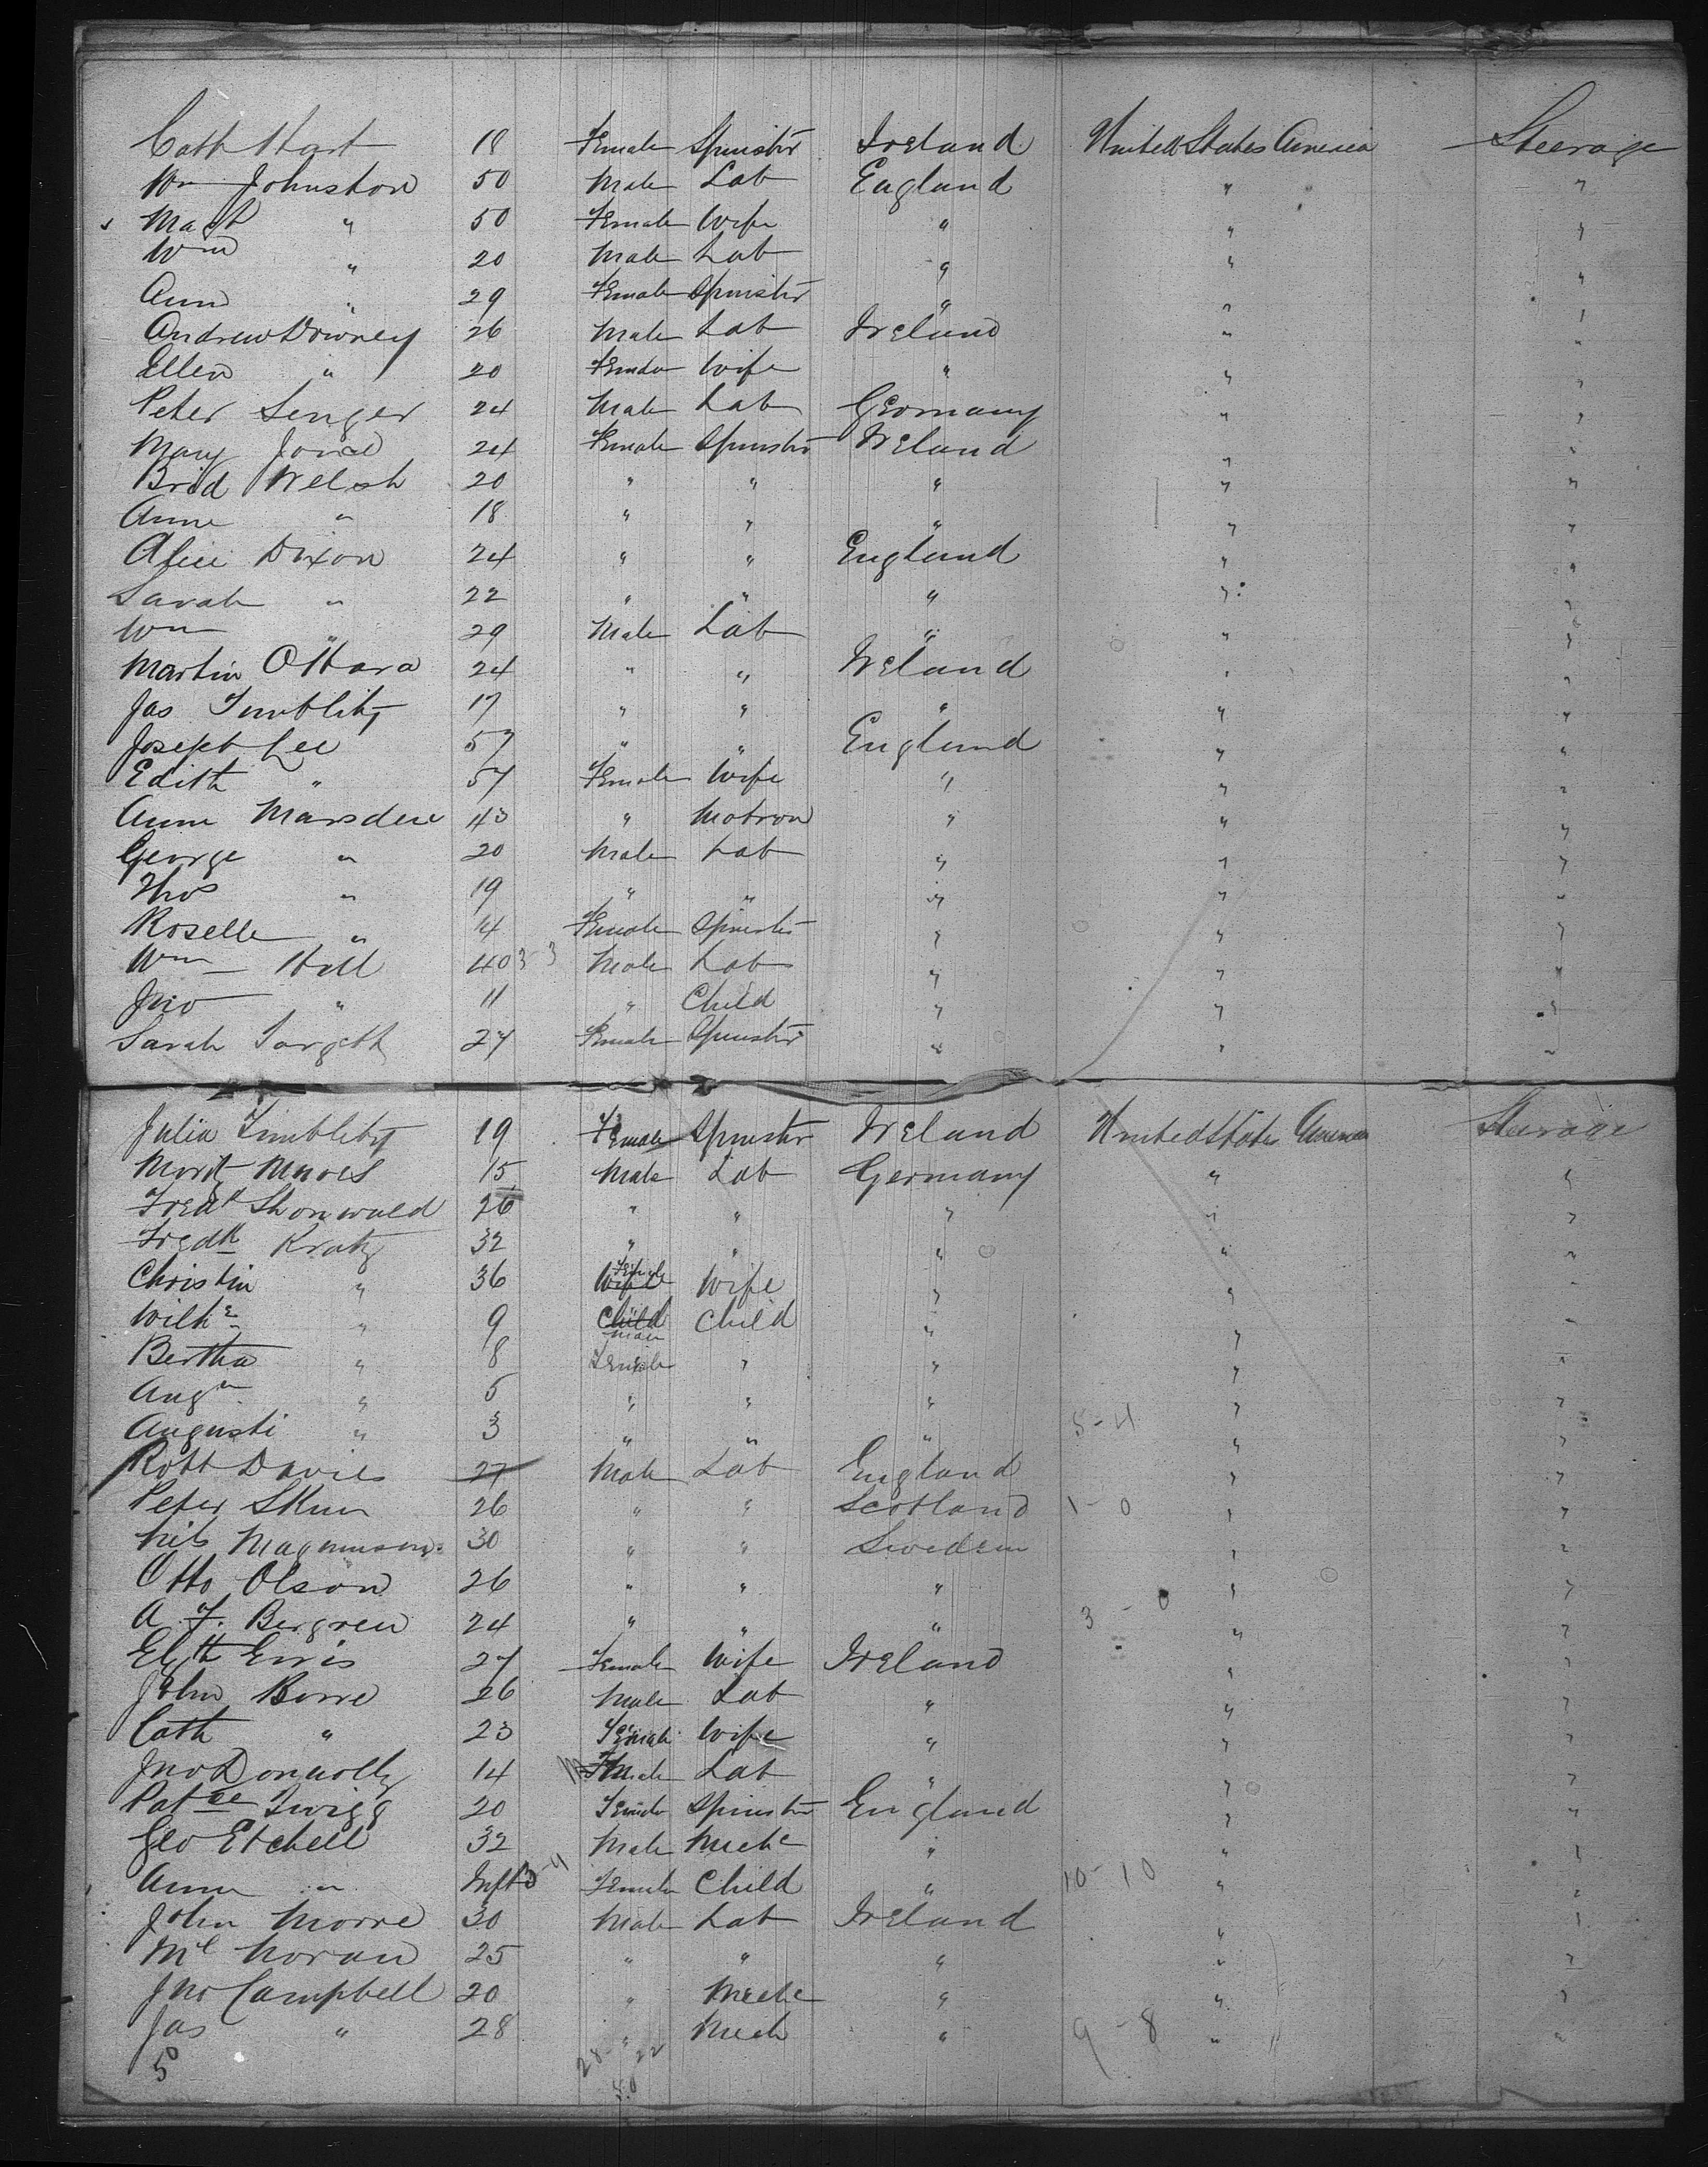 Cath Hart 18 Female Spinster Ireland United States America Steerage
Wm Johnston 50 Male Lab England " "
Magt " 50 Female Wife " " "
Wm " 20 Male Lab " " "
Ann " 29 Female Spinster " " "
Andrew Downey 26 Male Lab Ireland " "
Ellen " 20 Female Wife " " "
Peter Senger 24 Male Lab Germany " "
Mary 24 Female Spinster Ireland " "
Brid Welsh 20 " " " " "
Anne " 18 " " " " "
Alice Dixon 24 " " England " "
Sarah " 22 " " " " "
Wm " 29 Male Lab " " "
Martin O'Hara 24 " " Ireland " "
Jas Timblity 17 " " " " "
Joseph Lee 57 " " England " "
Edith " 57 Female Wife " " "
Anne Marsden 43 " Matron " " "
George " 20 Male Lab " " "
Thos " 19 " " " " "
Roselle " 14 Female Spinster " " "
Wm Hall 40 3 3 Male Lab " " "
Jno " 11 " Child " " "
Sarah 27 Female Spinster " " "
Julia Timblity 19 Female Spinster Ireland United States America Steerage
Moritz 15 Male Lab Germany " "
Fredk Shonwald 26 " " " " "
Fredk Kratz 32 " " " " "
Christin " 36 Wife Female Wife " " "
Wilh " 9 Child Male Child " " "
Bertha " 8 Female " " " "
Augn " 5 " " " " "
Augusti " 3 " " " 5-4 " "
Robt Davies 27 Male Lab England " "
Peter Skun 26 " " Scotland 1-0 " "
Nils Magnuson 30 " " Sweden " "
Otto Olson 26 " " " " "
A. F. Bergren 24 " " " 3-0 " "
Elizth Ennis 27 Female Wife Ireland " "
John Borre 26 Male Lab " " "
Cath " 23 Female Wife " " "
Jno Donnolly 14 M Female Lab " " "
Twigg 20 Female Spinster England " "
Geo Etchell 32 Male Mechc " " "
Anne " Inft 3-4 Female Child " 10-10 " "
John Morre 30 Male Lab Ireland " "
Ml Moran 25 " " " " "
Jno Campbell 20 " Mechc " " "
Jas " 28 " Mech " 9-8 " "
50 28-22
50